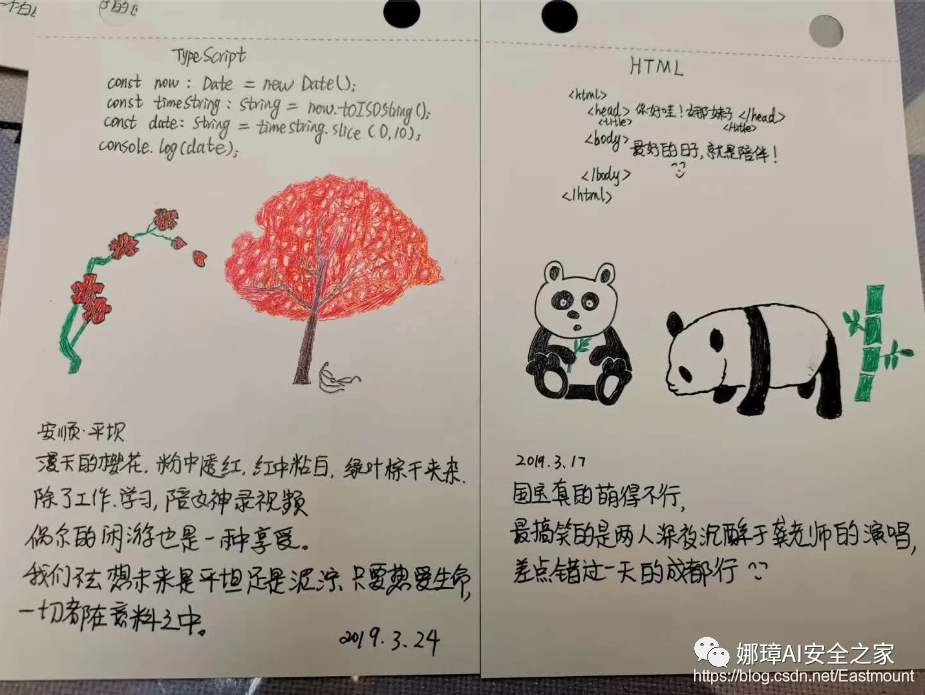 TypeScript
const now : Date = new Date();
const timeString : string = now.toISOString();
const date : string = timeString.slice (0,10);
console.log(date);
安顺·平坝
漫天的樱花，粉中透红，红中粘白，绿叶棕干夹杂.
除了工作、学习，陪女神录视频
偶尔的闲游也是一种享受。
我们不去想未来是平坦还是泥泞、只要热爱生命，
一切都在意料之中。
2019.3.24
HTML
<html>
<head> 你好哇！娜妹子 </head>
<title> </title>
<body> 最好的日子，就是陪伴！
</body>
</html>
2019.3.17
国宝真的萌得不行，
最搞笑的是两人深夜沉醉于龚老师的演唱，
差点错过一天的成都行
娜璋AI安全之家
https://blog.csdn.net/Eastmount